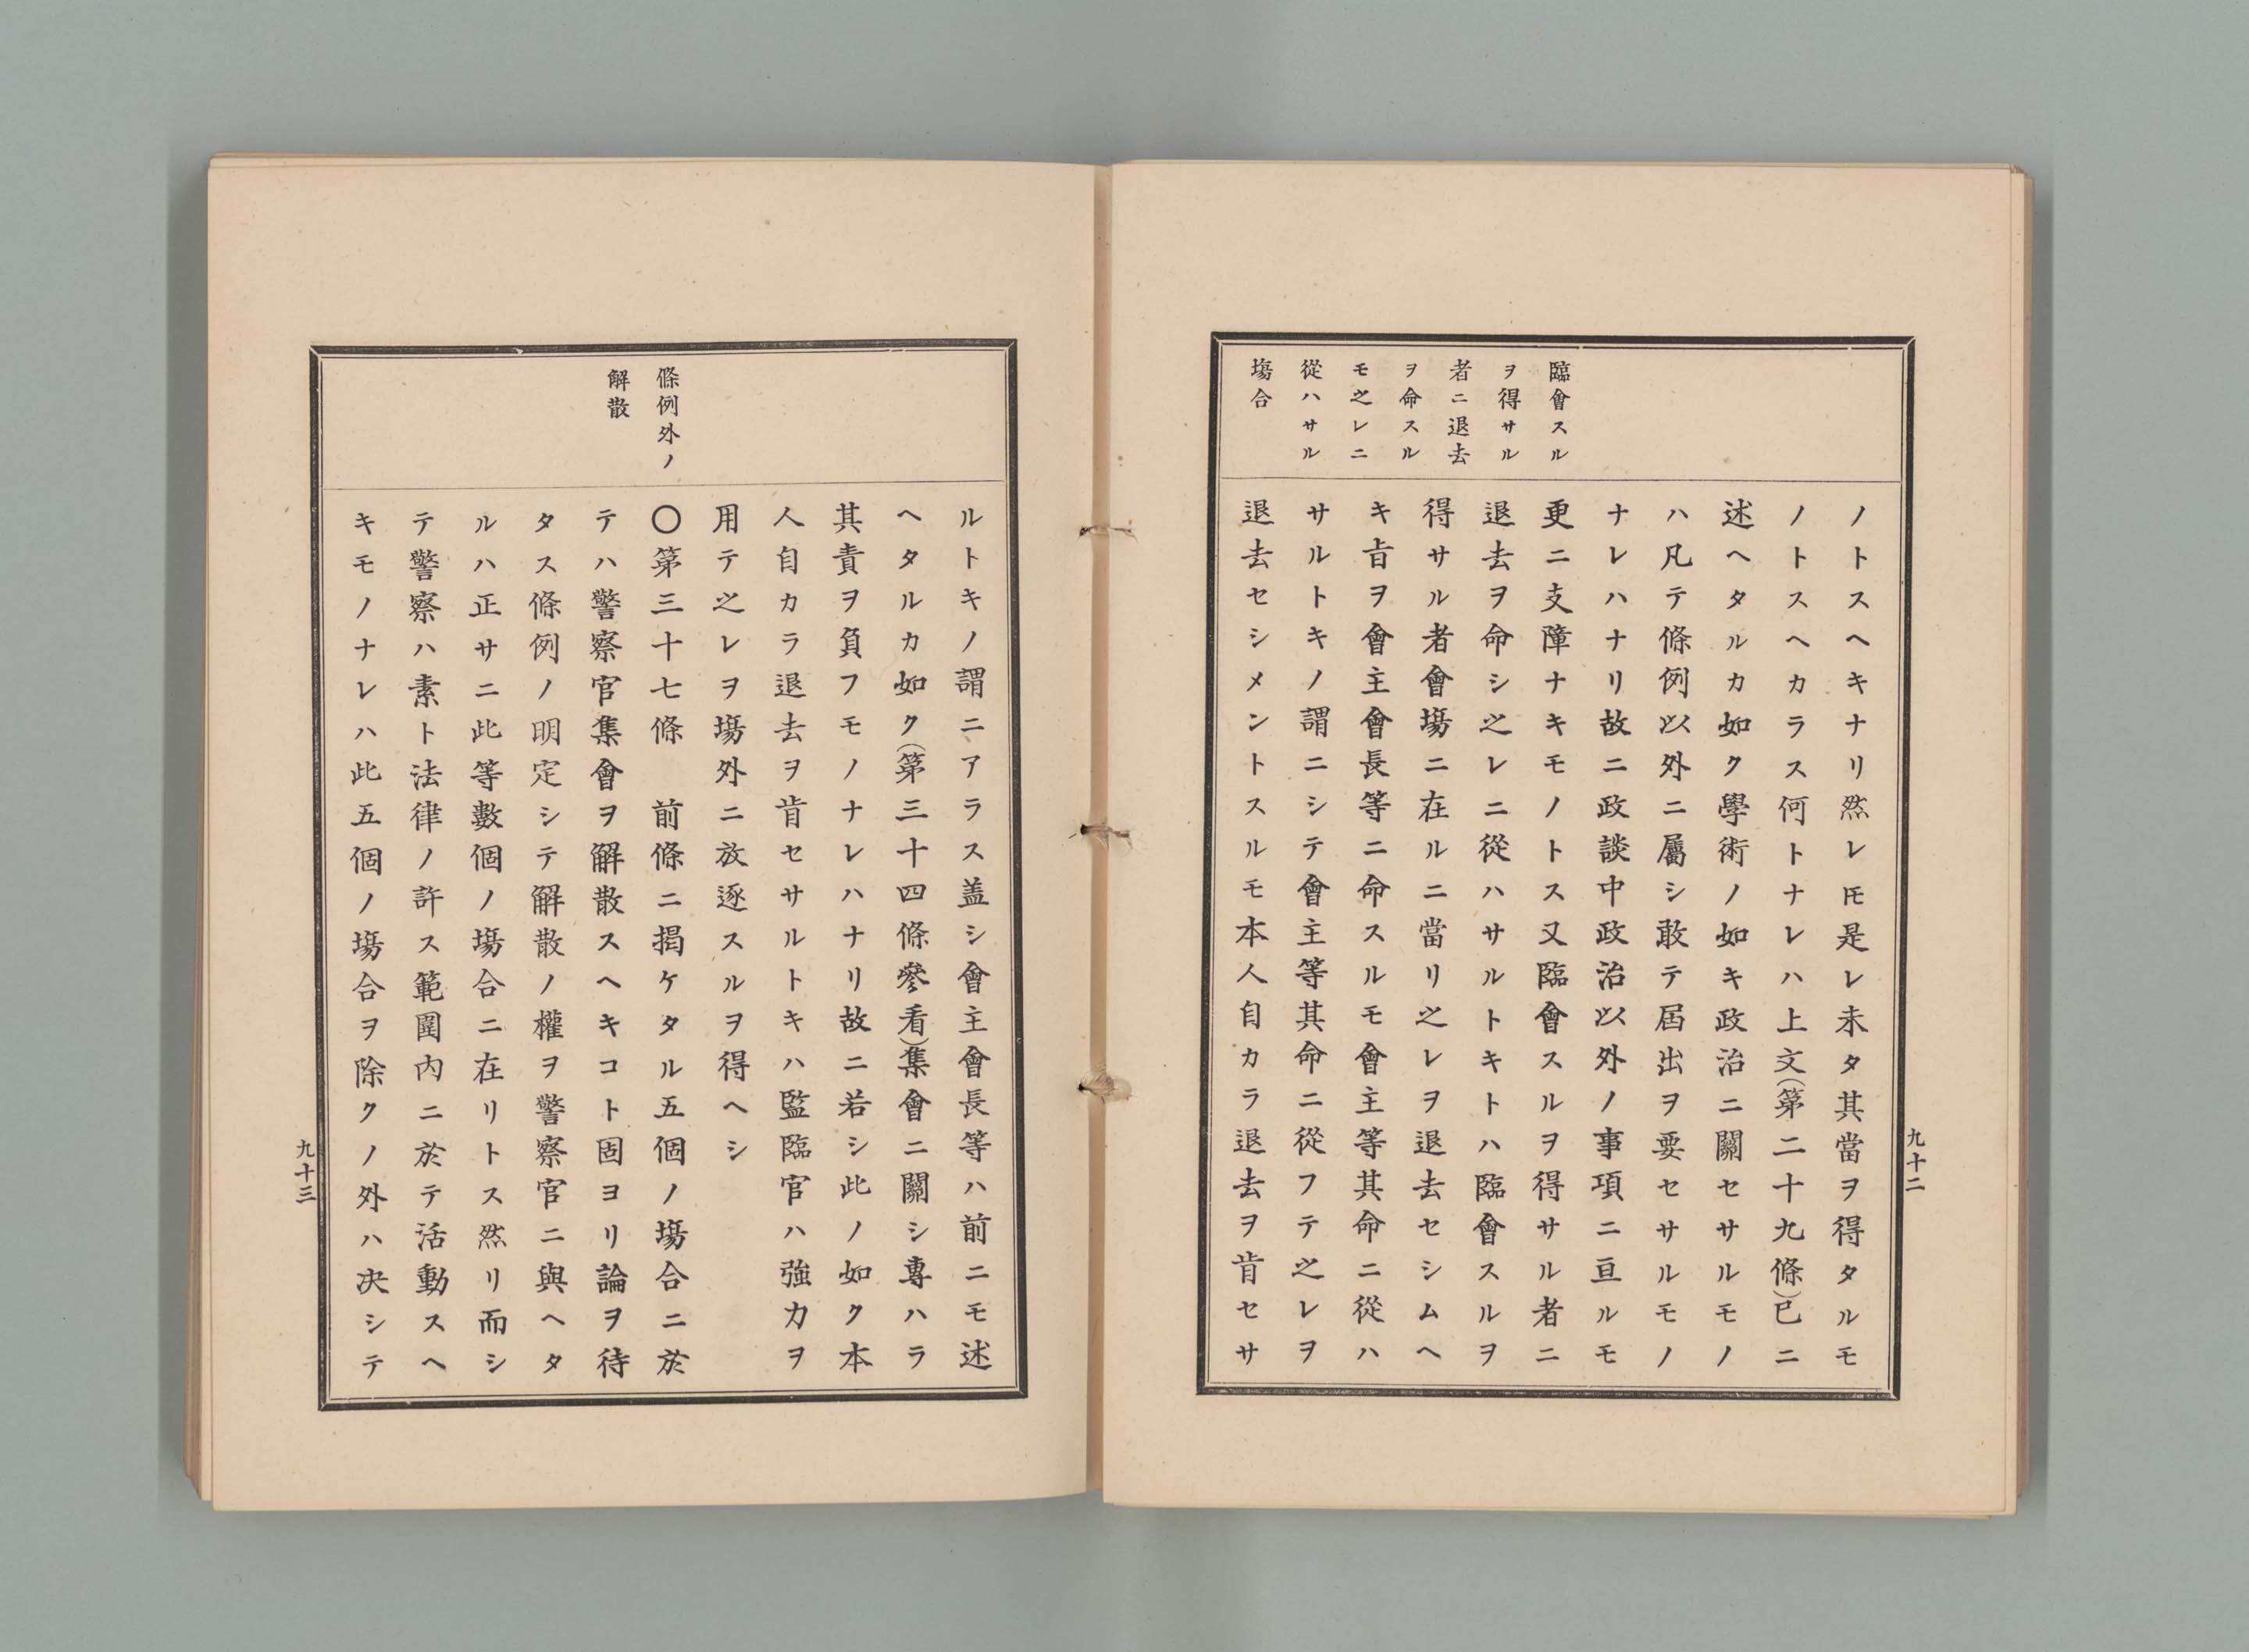 九十二
臨會スル
ヲ得サル
者ニ退去
ヲ命スル
モ之レニ
從ハサル
塲合
ノトスヘキナリ然レ𪜈是レ未タ其當ヲ得タルモ
ノトスヘカラス何トナレハ上文(第二十九條)已ニ
述ヘタルカ如ク學術ノ如キ政治ニ關セサルモノ
ハ凡テ條例以外ニ屬シ敢テ屆出ヲ要セサルモノ
ナレハナリ故ニ政談中政治以外ノ事項ニ亘ルモ
更ニ支障ナキモノトス又臨會スルヲ得サル者ニ
退去ヲ命シ之レニ從ハサルトキトハ臨會スルヲ
得サル者會塲ニ在ルニ當リ之レヲ退去セシムヘ
キ旨ヲ會主會長等ニ命スルモ會主等其命ニ從ハ
サルトキノ謂ニシテ會主等其命ニ從フテ之レヲ
退去セシメントスルモ本人自カラ退去ヲ肯セサ
條例外ノ
解散
ルトキノ謂ニアラス盖シ會主會長等ハ前ニモ述
ヘタルカ如ク(第三十四條參看)集會ニ關シ專ハラ
其責ヲ負フモノナレハナリ故ニ若シ此ノ如ク本
人自カラ退去ヲ肯セサルトキハ監臨官ハ強力ヲ
用テ之レヲ塲外ニ放逐スルヲ得ヘシ
〇第三十七條　前條ニ揭ケタル五個ノ塲合ニ於
テハ警察官集會ヲ解散スヘキコト固ヨリ論ヲ待
タス條例ノ明定シテ解散ノ權ヲ警察官ニ與ヘタ
ルハ正サニ此等數個ノ塲合ニ在リトス然リ而シ
テ警察ハ素ト法律ノ許ス範圍内ニ於テ活動スヘ
キモノナレハ此五個ノ塲合ヲ除クノ外ハ决シテ
九十三